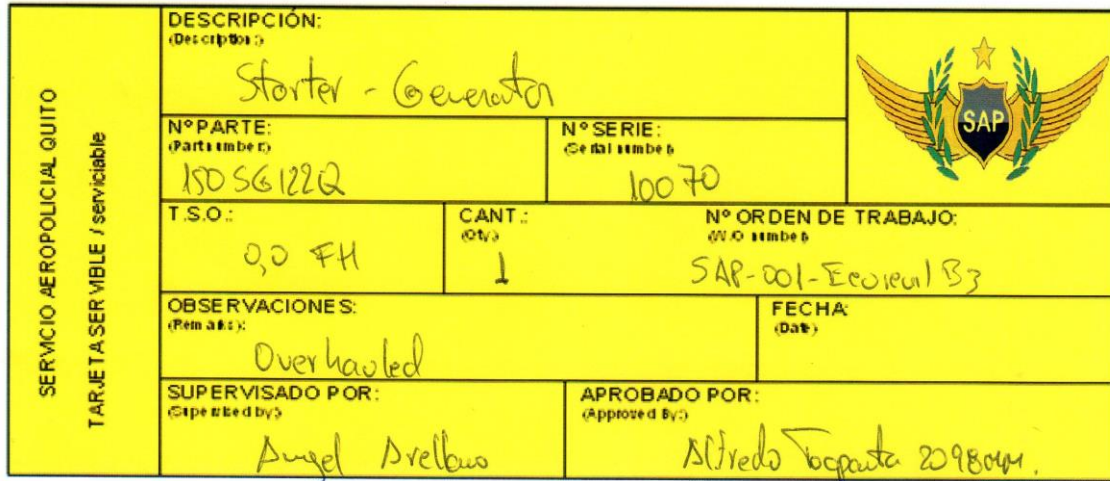 SERVICIO AEROPOLICIAL QUITO
TARJETA SERVIBLE / serviciable
DESCRIPCIÓN:
(Description:)
Starter - Generator
SAP
N° PARTE:
(Part number:)
150SG122Q
N° SERIE:
(Serial number)
10070
T.S.O.:
0,0 FH
CANT.:
(Qty.)
1
N° ORDEN DE TRABAJO:
(W.O number)
SAP-001-Ecureuil B3
OBSERVACIONES:
(Remarks):
Overhauled
FECHA:
(Date)
SUPERVISADO POR:
(Supervised by:)
Angel Arellano
APROBADO POR:
(Approved By:)
Alfredo Tocpanta